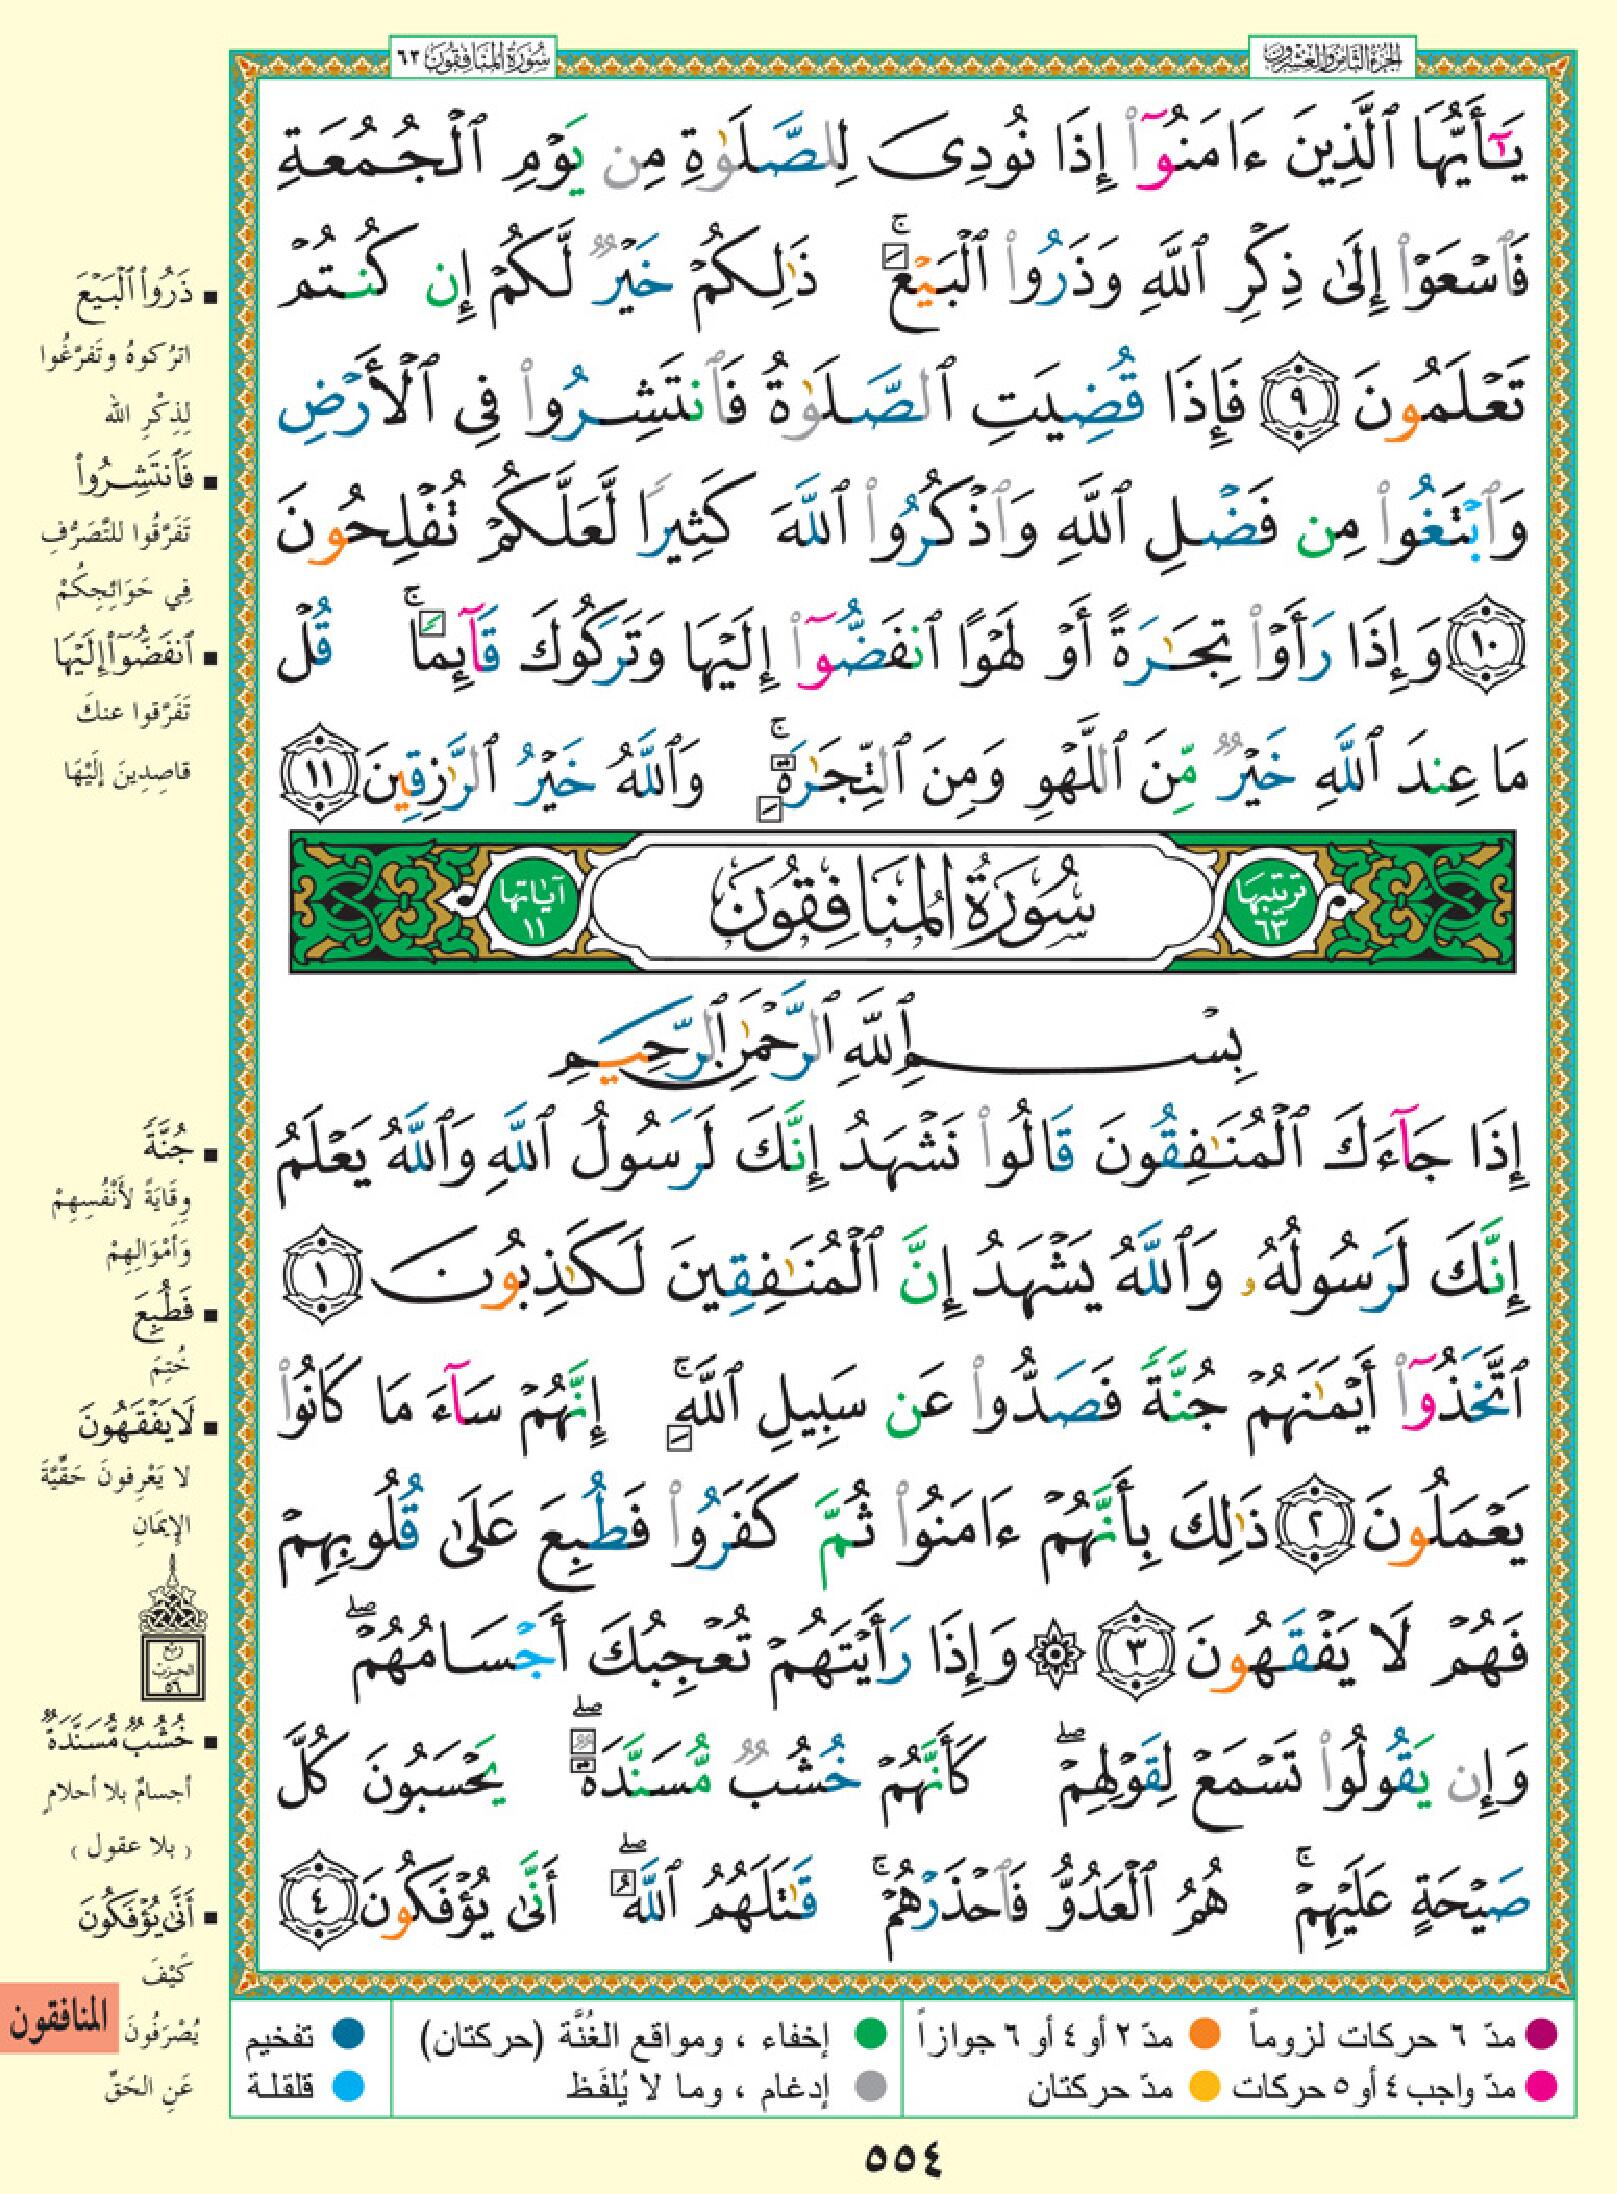 سُورَةُ المُنَافِقُون ٦٣
الجزءُ الثَّامِنُ وَالعِشْرُونَ
يَـٰٓأَيُّهَا ٱلَّذِينَ ءَامَنُوٓا۟ إِذَا نُودِىَ لِلصَّلَوٰةِ مِن يَوْمِ ٱلْجُمُعَةِ
فَٱسْعَوْا۟ إِلَىٰ ذِكْرِ ٱللَّهِ وَذَرُوا۟ ٱلْبَيْعَ ۚ ذَٰلِكُمْ خَيْرٌ لَّكُمْ إِن كُنتُمْ
تَعْلَمُونَ ٩ فَإِذَا قُضِيَتِ ٱلصَّلَوٰةُ فَٱنتَشِرُوا۟ فِى ٱلْأَرْضِ
وَٱبْتَغُوا۟ مِن فَضْلِ ٱللَّهِ وَٱذْكُرُوا۟ ٱللَّهَ كَثِيرًا لَّعَلَّكُمْ تُفْلِحُونَ
١٠ وَإِذَا رَأَوْا۟ تِجَـٰرَةً أَوْ لَهْوًا ٱنفَضُّوٓا۟ إِلَيْهَا وَتَرَكُوكَ قَآئِمًا ۚ قُلْ
مَا عِندَ ٱللَّهِ خَيْرٌ مِّنَ ٱللَّهْوِ وَمِنَ ٱلتِّجَـٰرَةِ ۚ وَٱللَّهُ خَيْرُ ٱلرَّٰزِقِينَ ١١
ترتيبها ٦٣ سُورَةُ المُنَافِقُونَ آياتها ١١
بِسْمِ ٱللَّهِ ٱلرَّحْمَـٰنِ ٱلرَّحِيمِ
إِذَا جَآءَكَ ٱلْمُنَـٰفِقُونَ قَالُوا۟ نَشْهَدُ إِنَّكَ لَرَسُولُ ٱللَّهِ وَٱللَّهُ يَعْلَمُ
إِنَّكَ لَرَسُولُهُۥ وَٱللَّهُ يَشْهَدُ إِنَّ ٱلْمُنَـٰفِقِينَ لَكَـٰذِبُونَ ١
ٱتَّخَذُوٓا۟ أَيْمَـٰنَهُمْ جُنَّةً فَصَدُّوا۟ عَن سَبِيلِ ٱللَّهِ ۚ إِنَّهُمْ سَآءَ مَا كَانُوا۟
يَعْمَلُونَ ٢ ذَٰلِكَ بِأَنَّهُمْ ءَامَنُوا۟ ثُمَّ كَفَرُوا۟ فَطُبِعَ عَلَىٰ قُلُوبِهِمْ
فَهُمْ لَا يَفْقَهُونَ ٣ ۞ وَإِذَا رَأَيْتَهُمْ تُعْجِبُكَ أَجْسَامُهُمْ ۖ
وَإِن يَقُولُوا۟ تَسْمَعْ لِقَوْلِهِمْ ۖ كَأَنَّهُمْ خُشُبٌ مُّسَنَّدَةٌ ۖ يَحْسَبُونَ كُلَّ
صَيْحَةٍ عَلَيْهِمْ ۚ هُمُ ٱلْعَدُوُّ فَٱحْذَرْهُمْ ۚ قَـٰتَلَهُمُ ٱللَّهُ ۖ أَنَّىٰ يُؤْفَكُونَ ٤
■ ذَرُوا۟ ٱلْبَيْعَ
اترُكوهُ وتَفَرَّغُوا
لِذِكْرِ الله
■ فَٱنتَشِرُوا۟
تَفَرَّقُوا للتَّصَرُّفِ
فِي حَوَائِجِكُمْ
■ ٱنفَضُّوٓا۟ إِلَيْهَا
تَفَرَّقوا عنكَ
قاصِدِينَ إلَيْهَا
■ جُنَّةً
وِقَايَةً لأَنْفُسِهِمْ
وَأمْوَالِهِمْ
■ فَطُبِعَ
خُتِمَ
■ لَا يَفْقَهُونَ
لا يَعْرِفونَ حَقِّيَّةَ
الإيمَانِ
ربع
الحزب
٥٦
■ خُشُبٌ مُّسَنَّدَةٌ
أجسامٌ بلا أحلامٍ
( بلا عقول )
■ أَنَّىٰ يُؤْفَكُونَ
كَيْفَ
يُصْرَفُونَ
عَنِ الحَقِّ
المنافقون
مدّ ٦ حركات لزوماً مدّ ٢ أو ٤ أو ٦ جوازاً إخفاء ، ومواقع الغُنَّة (حركتان) تفخيم
مدّ واجب ٤ أو ٥ حركات مدّ حركتان إدغام ، وما لا يُلفَظ قلقلة
٥٥٤